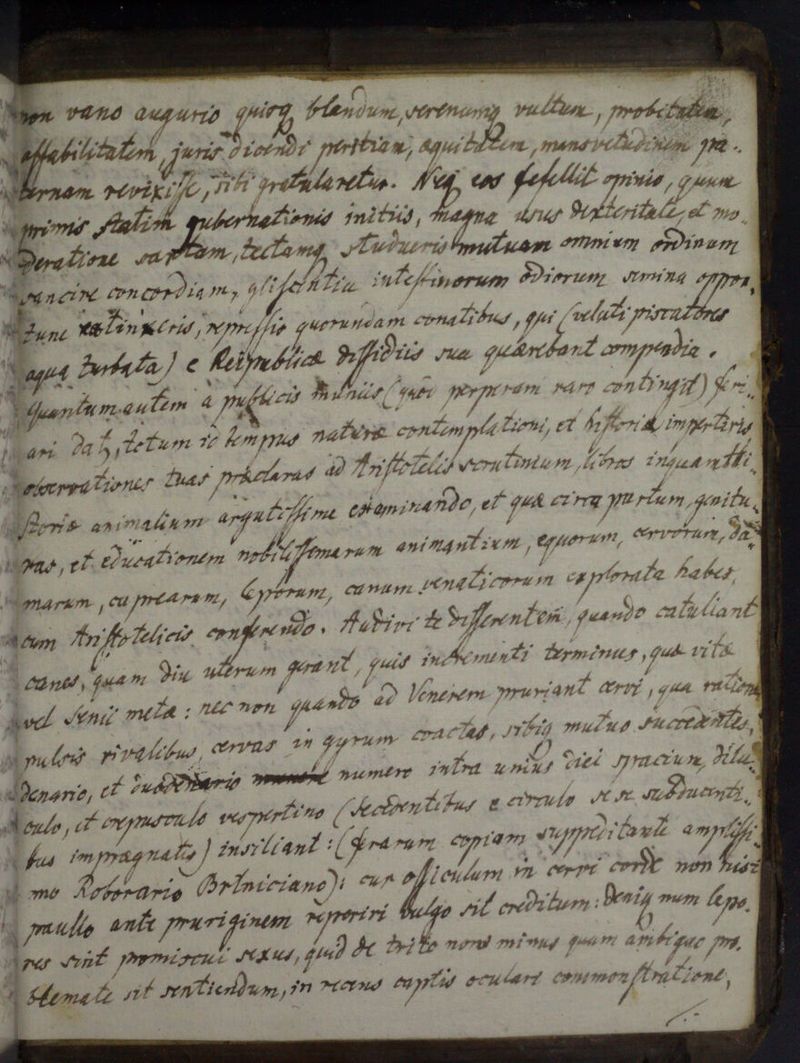 non vano augurio quisq blandum, serenumq vultum, probitatem,
affabilitatem, juris dicendi peritiam, aequitatem, mansvetudinem pa-
ternam revixisse, sibi gratularetur. Neq eos fefellit opinio, quum
primis statim gubernationis initiis, magna usus dexteritate, et mo-
deratione sartam, tectamq studueris mutuam omnium ordinum
sancire concordiam, gliscentia intestinorum odiorum semina oppor-
tune extinxeris, repressis quorundam conatibus, qui (veluti piscatores
aqua turbata) e Reipublicæ dissidiis sua quærebant compendia.
Quantum autem à publicis muniis (quod perperam raro contingit) feri-
ari datz, totum id tempus naturæ contemplationi, et historiæ impertiris
observationes tuas præclaras ad Aristotelis scrutinium, libros inquam Hi-
storiæ animalium argutissime examinando, et quæ circa partum, genitu-
ras, et educationem nobilissimarum animantium, equorum, cervorum, da-
marum, caprearum, leporum, canum venaticorum explorata habes,
cum Aristotelicis conferendo. Audivi te disserentem, quando catuliant
canes, quam diu uterum gerant, quis incrementi terminus, quæ vitæ
vel senii meta: nec non quando ad Venerem pruriant cervi, qua ratione
pulsis rivalibus cervas in gyrum coactas, sibiq mutuo succedentes,
denario, et duodenario numero intra unius diei spacium, dilu-
culo, et crepusculo vespertino (secedentibus e circulo se se subducenti-
bus imprægnatis) insiliant: (ferarum copiam suppeditante amplissi-
mo Roborario Brtniciano): cur officulum in cervi corde non nisi
paullo ante pruriginem reperiri vulgo sit creditum: deniq num lepo-
res sint promiscui sexus, quid de trito non minus quam ambiguo pro-
blemate sit sentiendum, in recens captis oculari commonstratione,